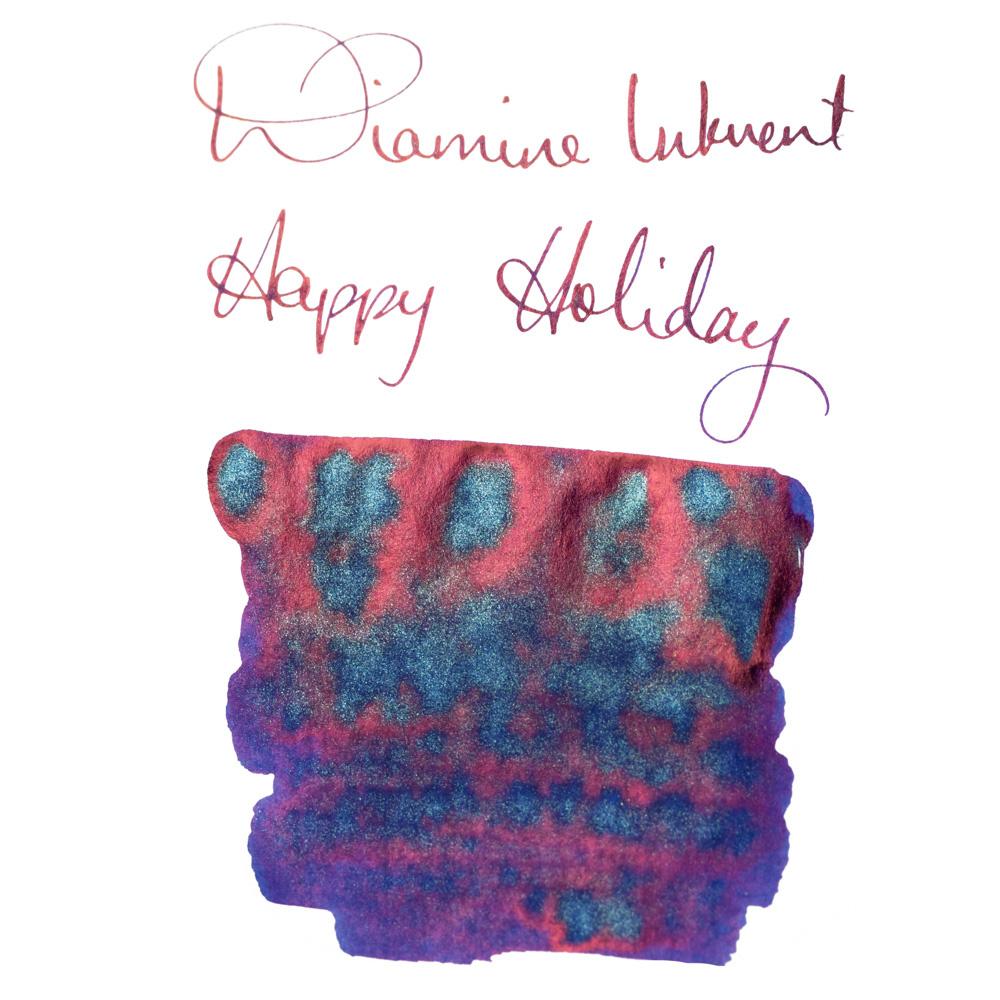 Diamine Inkvent
Happy Holiday